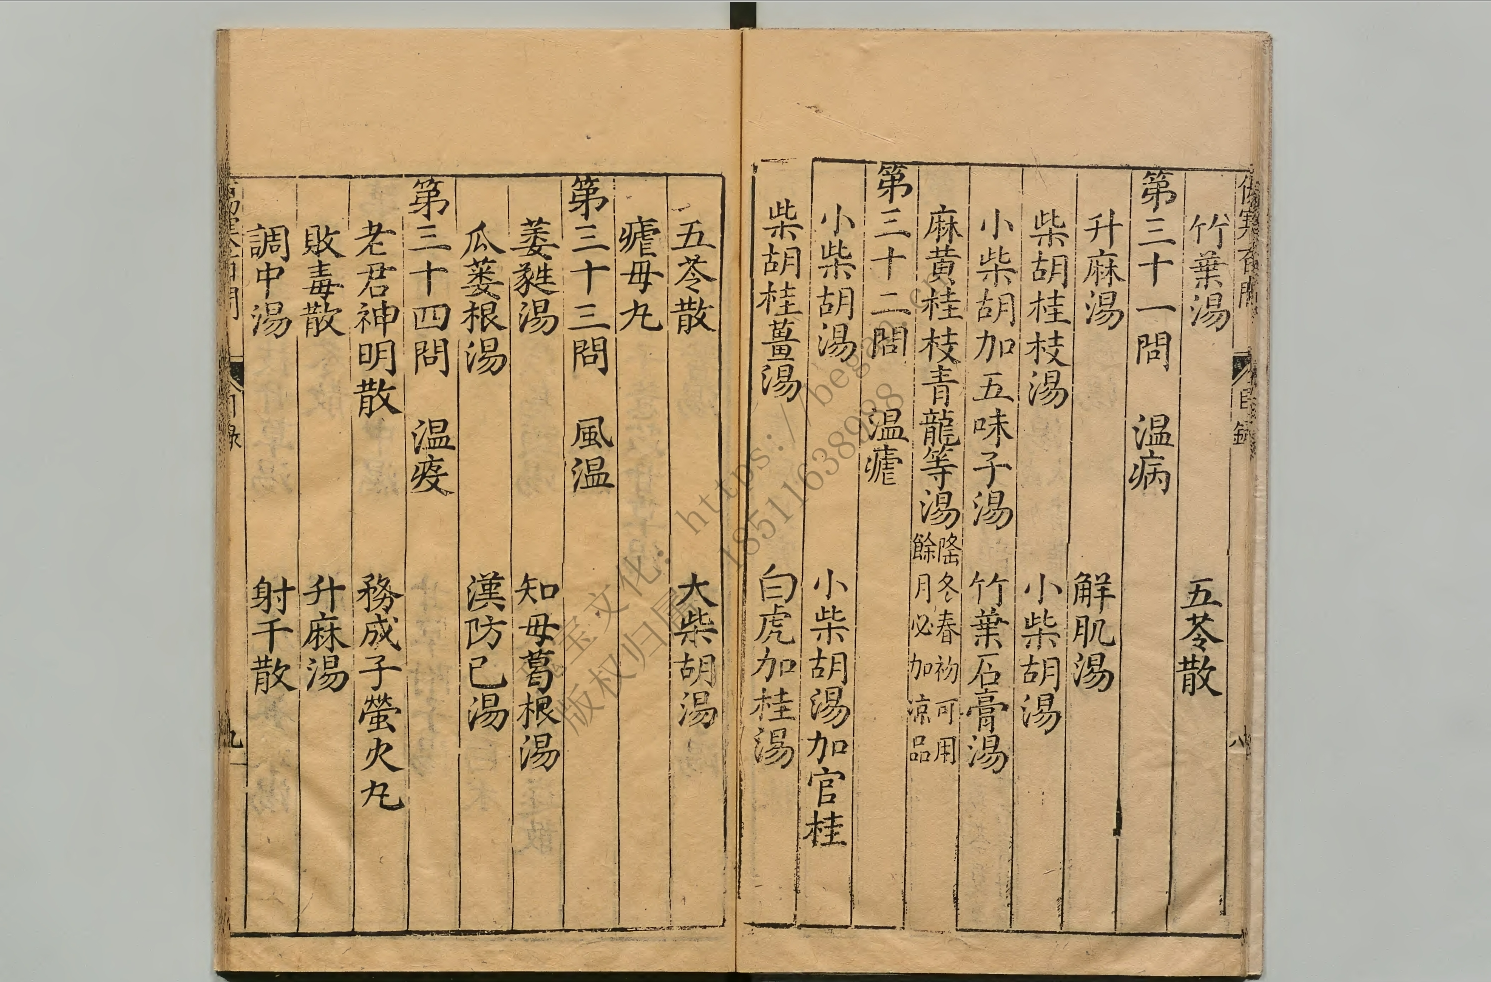 竹葉湯 五苓散
第三十一問 温病
升麻湯 解肌湯
柴胡桂枝湯 小柴胡湯
小柴胡加五味子湯 竹葉石膏湯
麻黃桂枝青龍等湯
隆冬春初可用
餘月必加凉品
第三十二問 温瘧
小柴胡湯 小柴胡湯加官桂
柴胡桂薑湯 白虎加桂湯
五苓散 大柴胡湯
瘧母丸
第三十三問 風温
萎蕤湯 知母葛根湯
瓜蔞根湯 漢防已湯
第三十四問 温疫
老君神明散 務成子螢火丸
敗毒散 升麻湯
調中湯 射干散
目錄
八
九
版权归属
18511638988